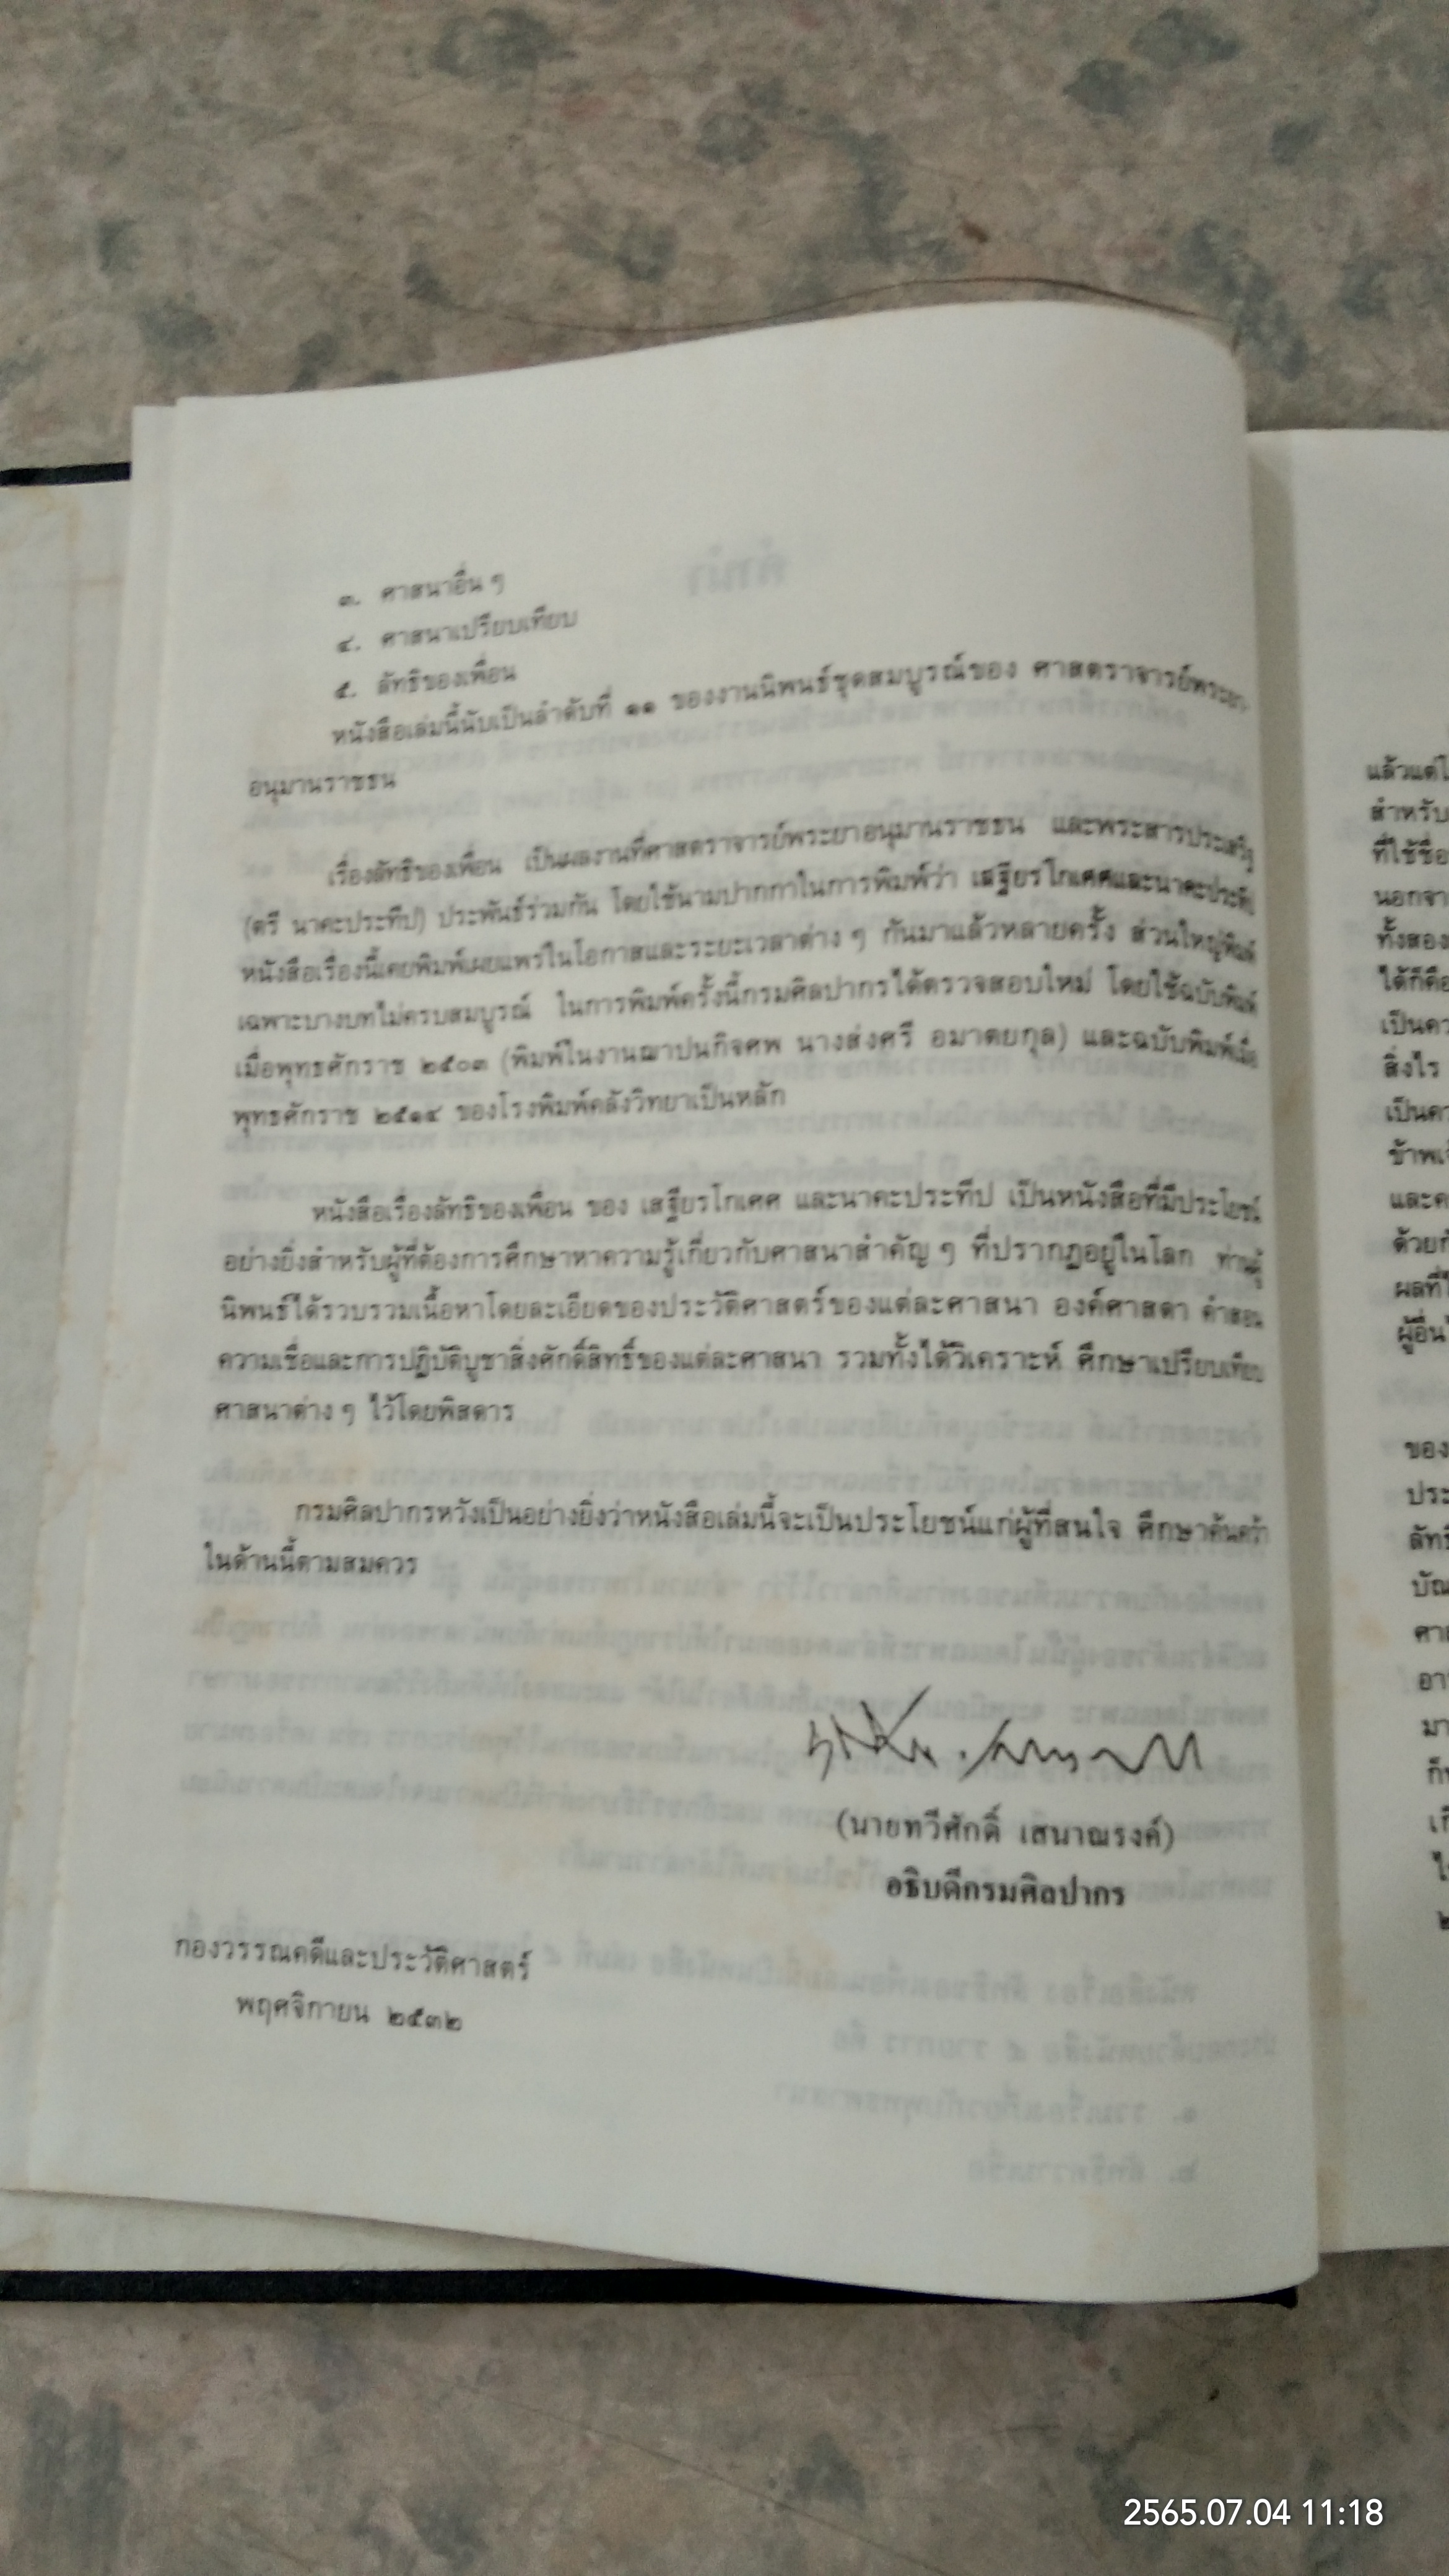 ๓. ศาสนาอื่น ๆ
๔. ศาสนาเปรียบเทียบ
๕. ลัทธิของเพื่อน
หนังสือเล่มนี้นับเป็นลำดับที่ ๑๑ ของงานนิพนธ์ชุดสมบูรณ์ของ ศาสตราจารย์พระยา-
อนุมานราชธน
เรื่องลัทธิของเพื่อน เป็นผลงานที่ศาสตราจารย์พระยาอนุมานราชธน และพระสารประเสริฐ
(ตรี นาคะประทีป) ประพันธ์ร่วมกัน โดยใช้นามปากกาในการพิมพ์ว่า เสฐียรโกเศศและนาคะประทีป
หนังสือเรื่องนี้เคยพิมพ์เผยแพร่ในโอกาสและระยะเวลาต่าง ๆ กันมาแล้วหลายครั้ง ส่วนใหญ่พิมพ์
เฉพาะบางบทไม่ครบสมบูรณ์ ในการพิมพ์ครั้งนี้กรมศิลปากรได้ตรวจสอบใหม่ โดยใช้ฉบับพิมพ์
เมื่อพุทธศักราช ๒๕๐๓ (พิมพ์ในงานฌาปนกิจศพ นางส่งศรี อมาตยกุล) และฉบับพิมพ์เมื่อ
พุทธศักราช ๒๕๑๔ ของโรงพิมพ์คลังวิทยาเป็นหลัก
หนังสือเรื่องลัทธิของเพื่อน ของ เสฐียรโกเศศ และนาคะประทีป เป็นหนังสือที่มีประโยชน์
อย่างยิ่งสำหรับผู้ที่ต้องการศึกษาหาความรู้เกี่ยวกับศาสนาสำคัญ ๆ ที่ปรากฏอยู่ในโลก ท่านผู้
นิพนธ์ได้รวบรวมเนื้อหาโดยละเอียดของประวัติศาสตร์ของแต่ละศาสนา องค์ศาสดา คำสอน
ความเชื่อและการปฏิบัติบูชาสิ่งศักดิ์สิทธิ์ของแต่ละศาสนา รวมทั้งได้วิเคราะห์ ศึกษาเปรียบเทียบ
ศาสนาต่าง ๆ ไว้โดยพิสดาร
กรมศิลปากรหวังเป็นอย่างยิ่งว่าหนังสือเล่มนี้จะเป็นประโยชน์แก่ผู้ที่สนใจ ศึกษาค้นคว้า
ในด้านนี้ตามสมควร
(นายทวีศักดิ์ เสนาณรงค์)
อธิบดีกรมศิลปากร
กองวรรณคดีและประวัติศาสตร์
พฤศจิกายน ๒๕๓๒
แล้วแต่
สำหรับ
ที่ใช้ชื่อ
นอกจา
ทั้งสอง
ได้ก็คือ
เป็นคว
สิ่งไร
เป็นคว
ข้าพเจ้
และค
ด้วยกั
ผลที่
ผู้อื่น
ของ
ประ
ลัทธิ
บัณ
ศา
อา
มา
2565.07.04 11:18